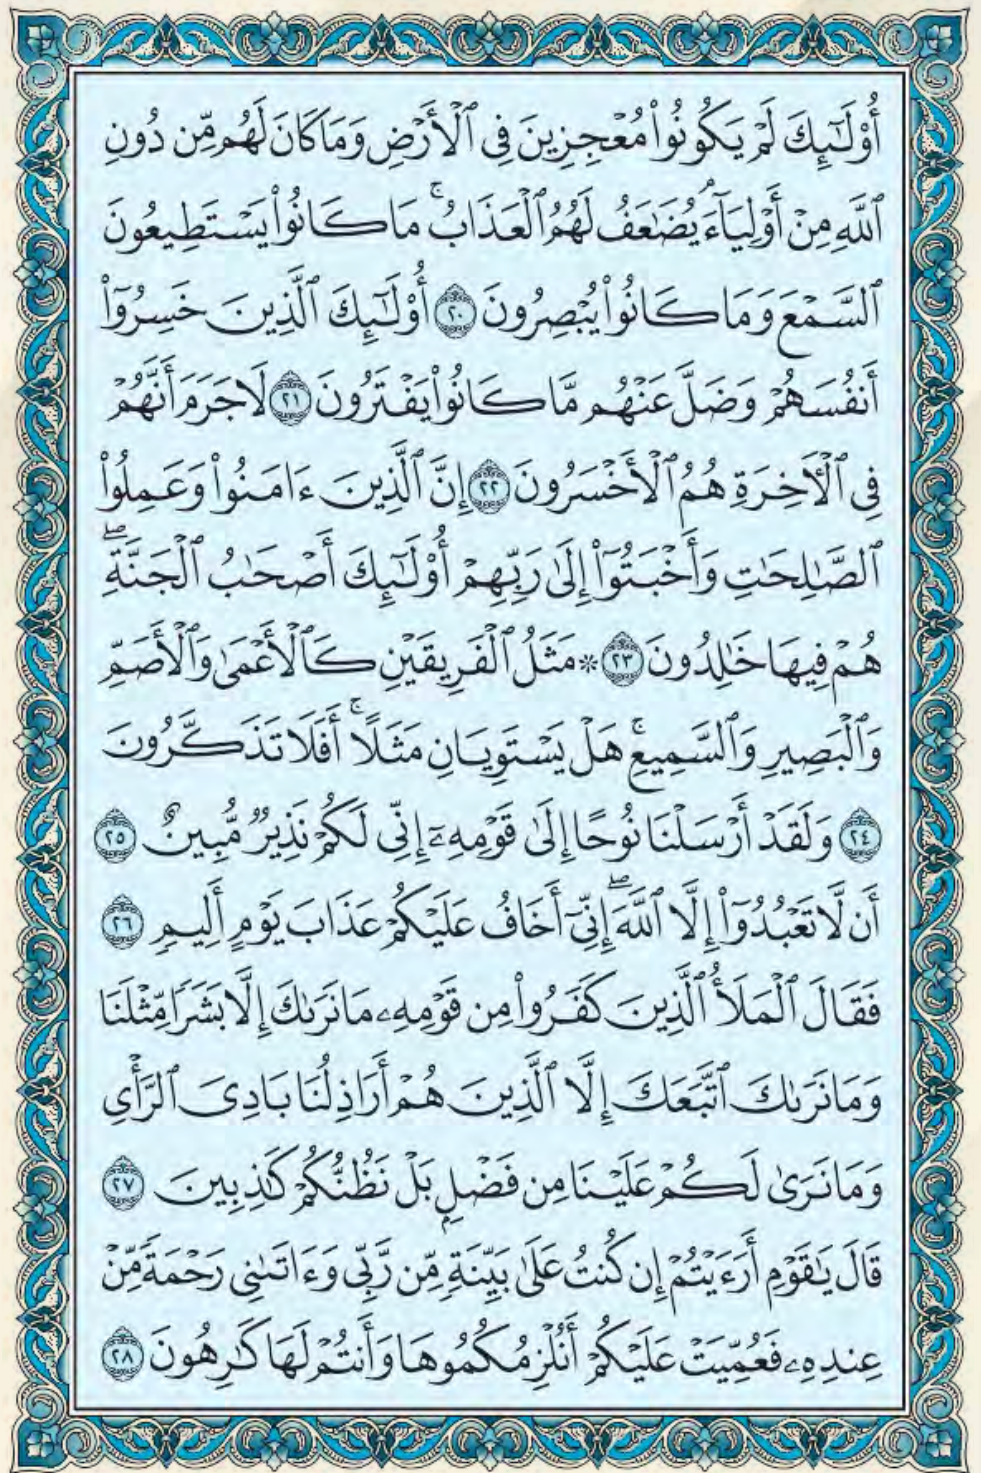 أُوْلَـٰٓئِكَ لَمۡ يَكُونُواْ مُعۡجِزِينَ فِى ٱلۡأَرۡضِ وَمَا كَانَ لَهُم مِّن دُونِ
ٱللَّهِ مِنۡ أَوۡلِيَآءَۘ يُضَـٰعَفُ لَهُمُ ٱلۡعَذَابُۚ مَا كَانُواْ يَسۡتَطِيعُونَ
ٱلسَّمۡعَ وَمَا كَانُواْ يُبۡصِرُونَ ٢٠ أُوْلَـٰٓئِكَ ٱلَّذِينَ خَسِرُوٓاْ
أَنفُسَهُمۡ وَضَلَّ عَنۡهُم مَّا كَانُواْ يَفۡتَرُونَ ٢١ لَا جَرَمَ أَنَّهُمۡ
فِى ٱلۡأٓخِرَةِ هُمُ ٱلۡأَخۡسَرُونَ ٢٢ إِنَّ ٱلَّذِينَ ءَامَنُواْ وَعَمِلُواْ
ٱلصَّـٰلِحَـٰتِ وَأَخۡبَتُوٓاْ إِلَىٰ رَبِّهِمۡ أُوْلَـٰٓئِكَ أَصۡحَـٰبُ ٱلۡجَنَّةِۖ
هُمۡ فِيهَا خَـٰلِدُونَ ٢٣ ۞ مَثَلُ ٱلۡفَرِيقَيۡنِ كَٱلۡأَعۡمَىٰ وَٱلۡأَصَمِّ
وَٱلۡبَصِيرِ وَٱلسَّمِيعِۚ هَلۡ يَسۡتَوِيَانِ مَثَلًاۚ أَفَلَا تَذَكَّرُونَ
٢٤ وَلَقَدۡ أَرۡسَلۡنَا نُوحًا إِلَىٰ قَوۡمِهِۦٓ إِنِّى لَكُمۡ نَذِيرٞ مُّبِينٌ ٢٥
أَن لَّا تَعۡبُدُوٓاْ إِلَّا ٱللَّهَۖ إِنِّىٓ أَخَافُ عَلَيۡكُمۡ عَذَابَ يَوۡمٍ أَلِيمٖ ٢٦
فَقَالَ ٱلۡمَلَأُ ٱلَّذِينَ كَفَرُواْ مِن قَوۡمِهِۦ مَا نَرَىٰكَ إِلَّا بَشَرٗا مِّثۡلَنَا
وَمَا نَرَىٰكَ ٱتَّبَعَكَ إِلَّا ٱلَّذِينَ هُمۡ أَرَاذِلُنَا بَادِىَ ٱلرَّأۡىِ
وَمَا نَرَىٰ لَكُمۡ عَلَيۡنَا مِن فَضۡلِۭ بَلۡ نَظُنُّكُمۡ كَـٰذِبِينَ ٢٧
قَالَ يَـٰقَوۡمِ أَرَءَيۡتُمۡ إِن كُنتُ عَلَىٰ بَيِّنَةٖ مِّن رَّبِّى وَءَاتَىٰنِى رَحۡمَةٗ مِّنۡ
عِندِهِۦ فَعُمِّيَتۡ عَلَيۡكُمۡ أَنُلۡزِمُكُمُوهَا وَأَنتُمۡ لَهَا كَـٰرِهُونَ ٢٨